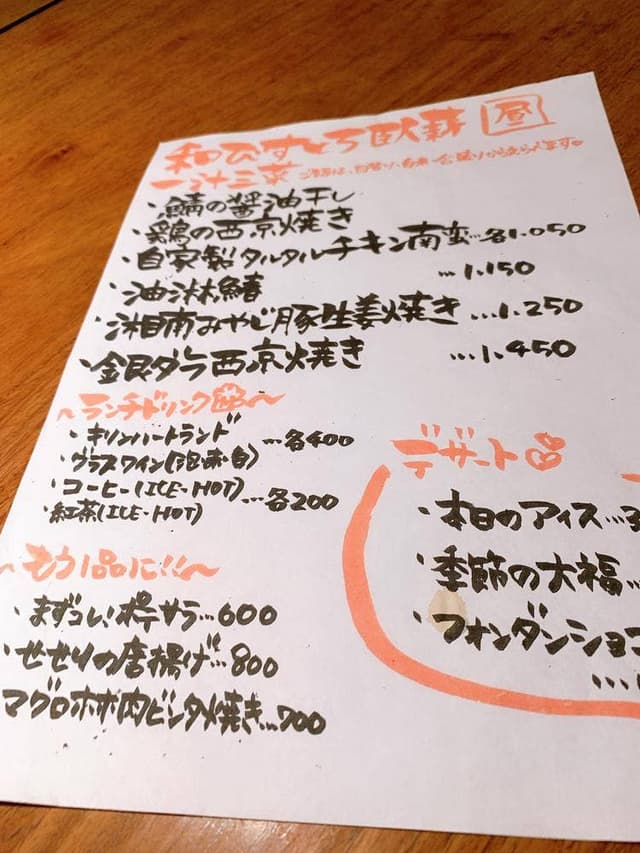 和びすとろ臥薪 昼
一汁三菜
・鯖の醤油干し
・鶏の西京焼き
・自家製タルタルチキン南蛮…各1.050
・油淋鰆 …1.150
・湘南みやじ豚生姜焼き …1.250
・銀ダラ西京焼き …1.450
～ランチドリンク～
・キリンハートランド
・グラスワイン(泡・赤・白) …各400
・コーヒー(ICE・HOT)
・紅茶(ICE・HOT) …各200
～もう1品に!!～
・まずコレ!ポテサラ…600
・せせりの唐揚げ…800
マグロホホ肉ビンタ焼き…700
デザート
・本日のアイス…3
・季節の大福…
・フォンダンショコ
…